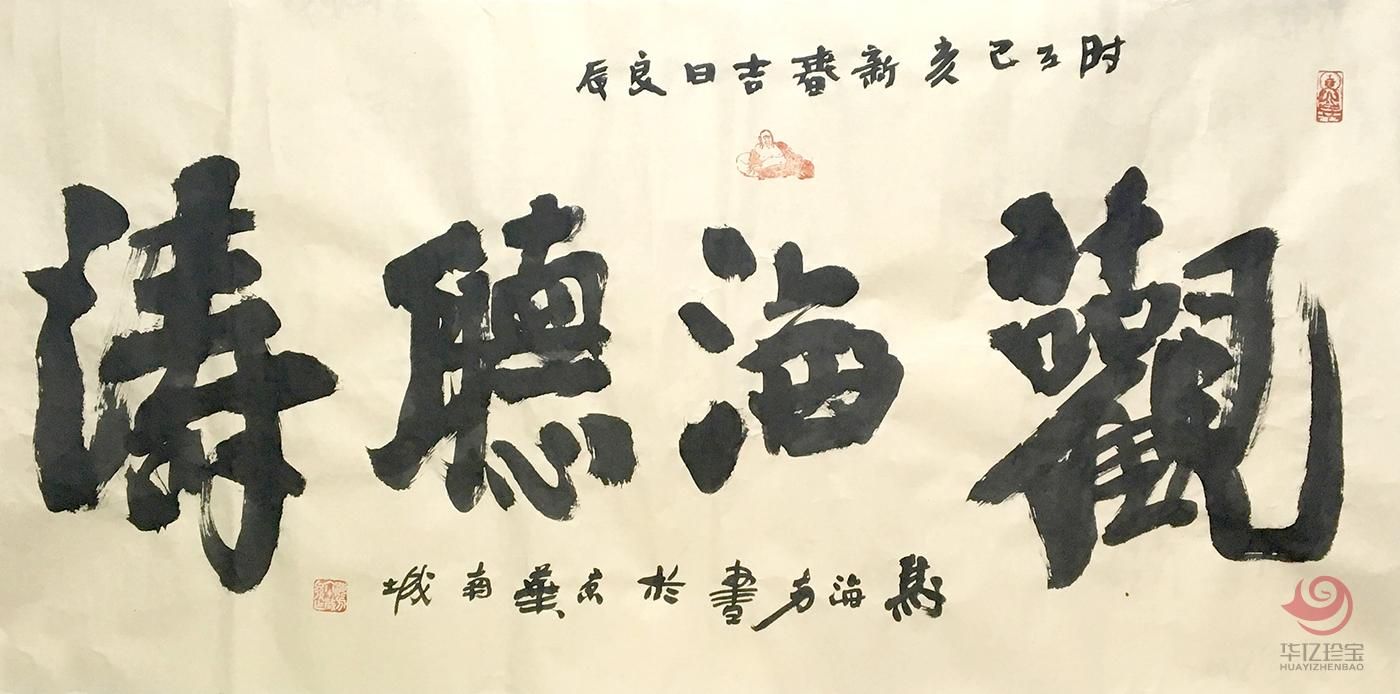 时在己亥新春吉日良辰
觀海聽涛
海方書於京華南城
华亿珍宝
HUAYIZHENBAO